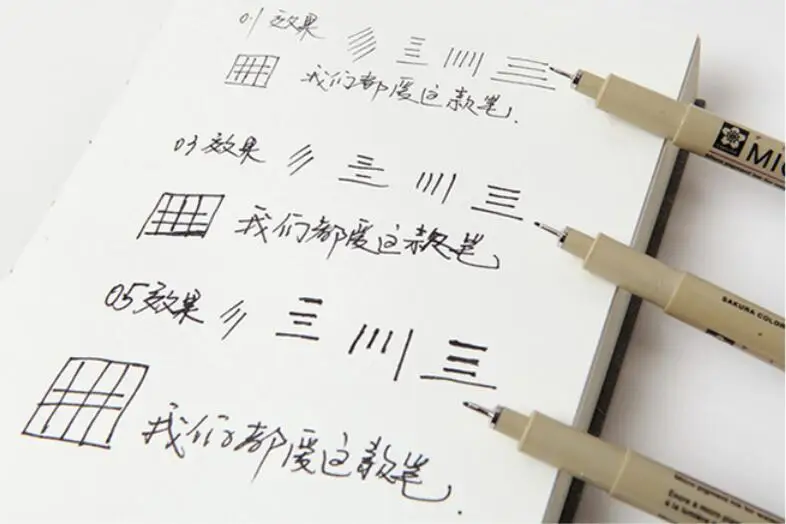 01效果
我们都爱这款笔.
03效果
我们都爱这款笔
05效果
我们都爱这款笔.
MIC
SAKURA COLOR